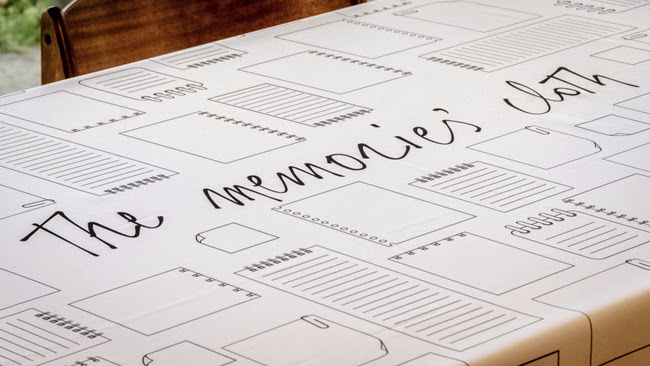 The memorie's cloth